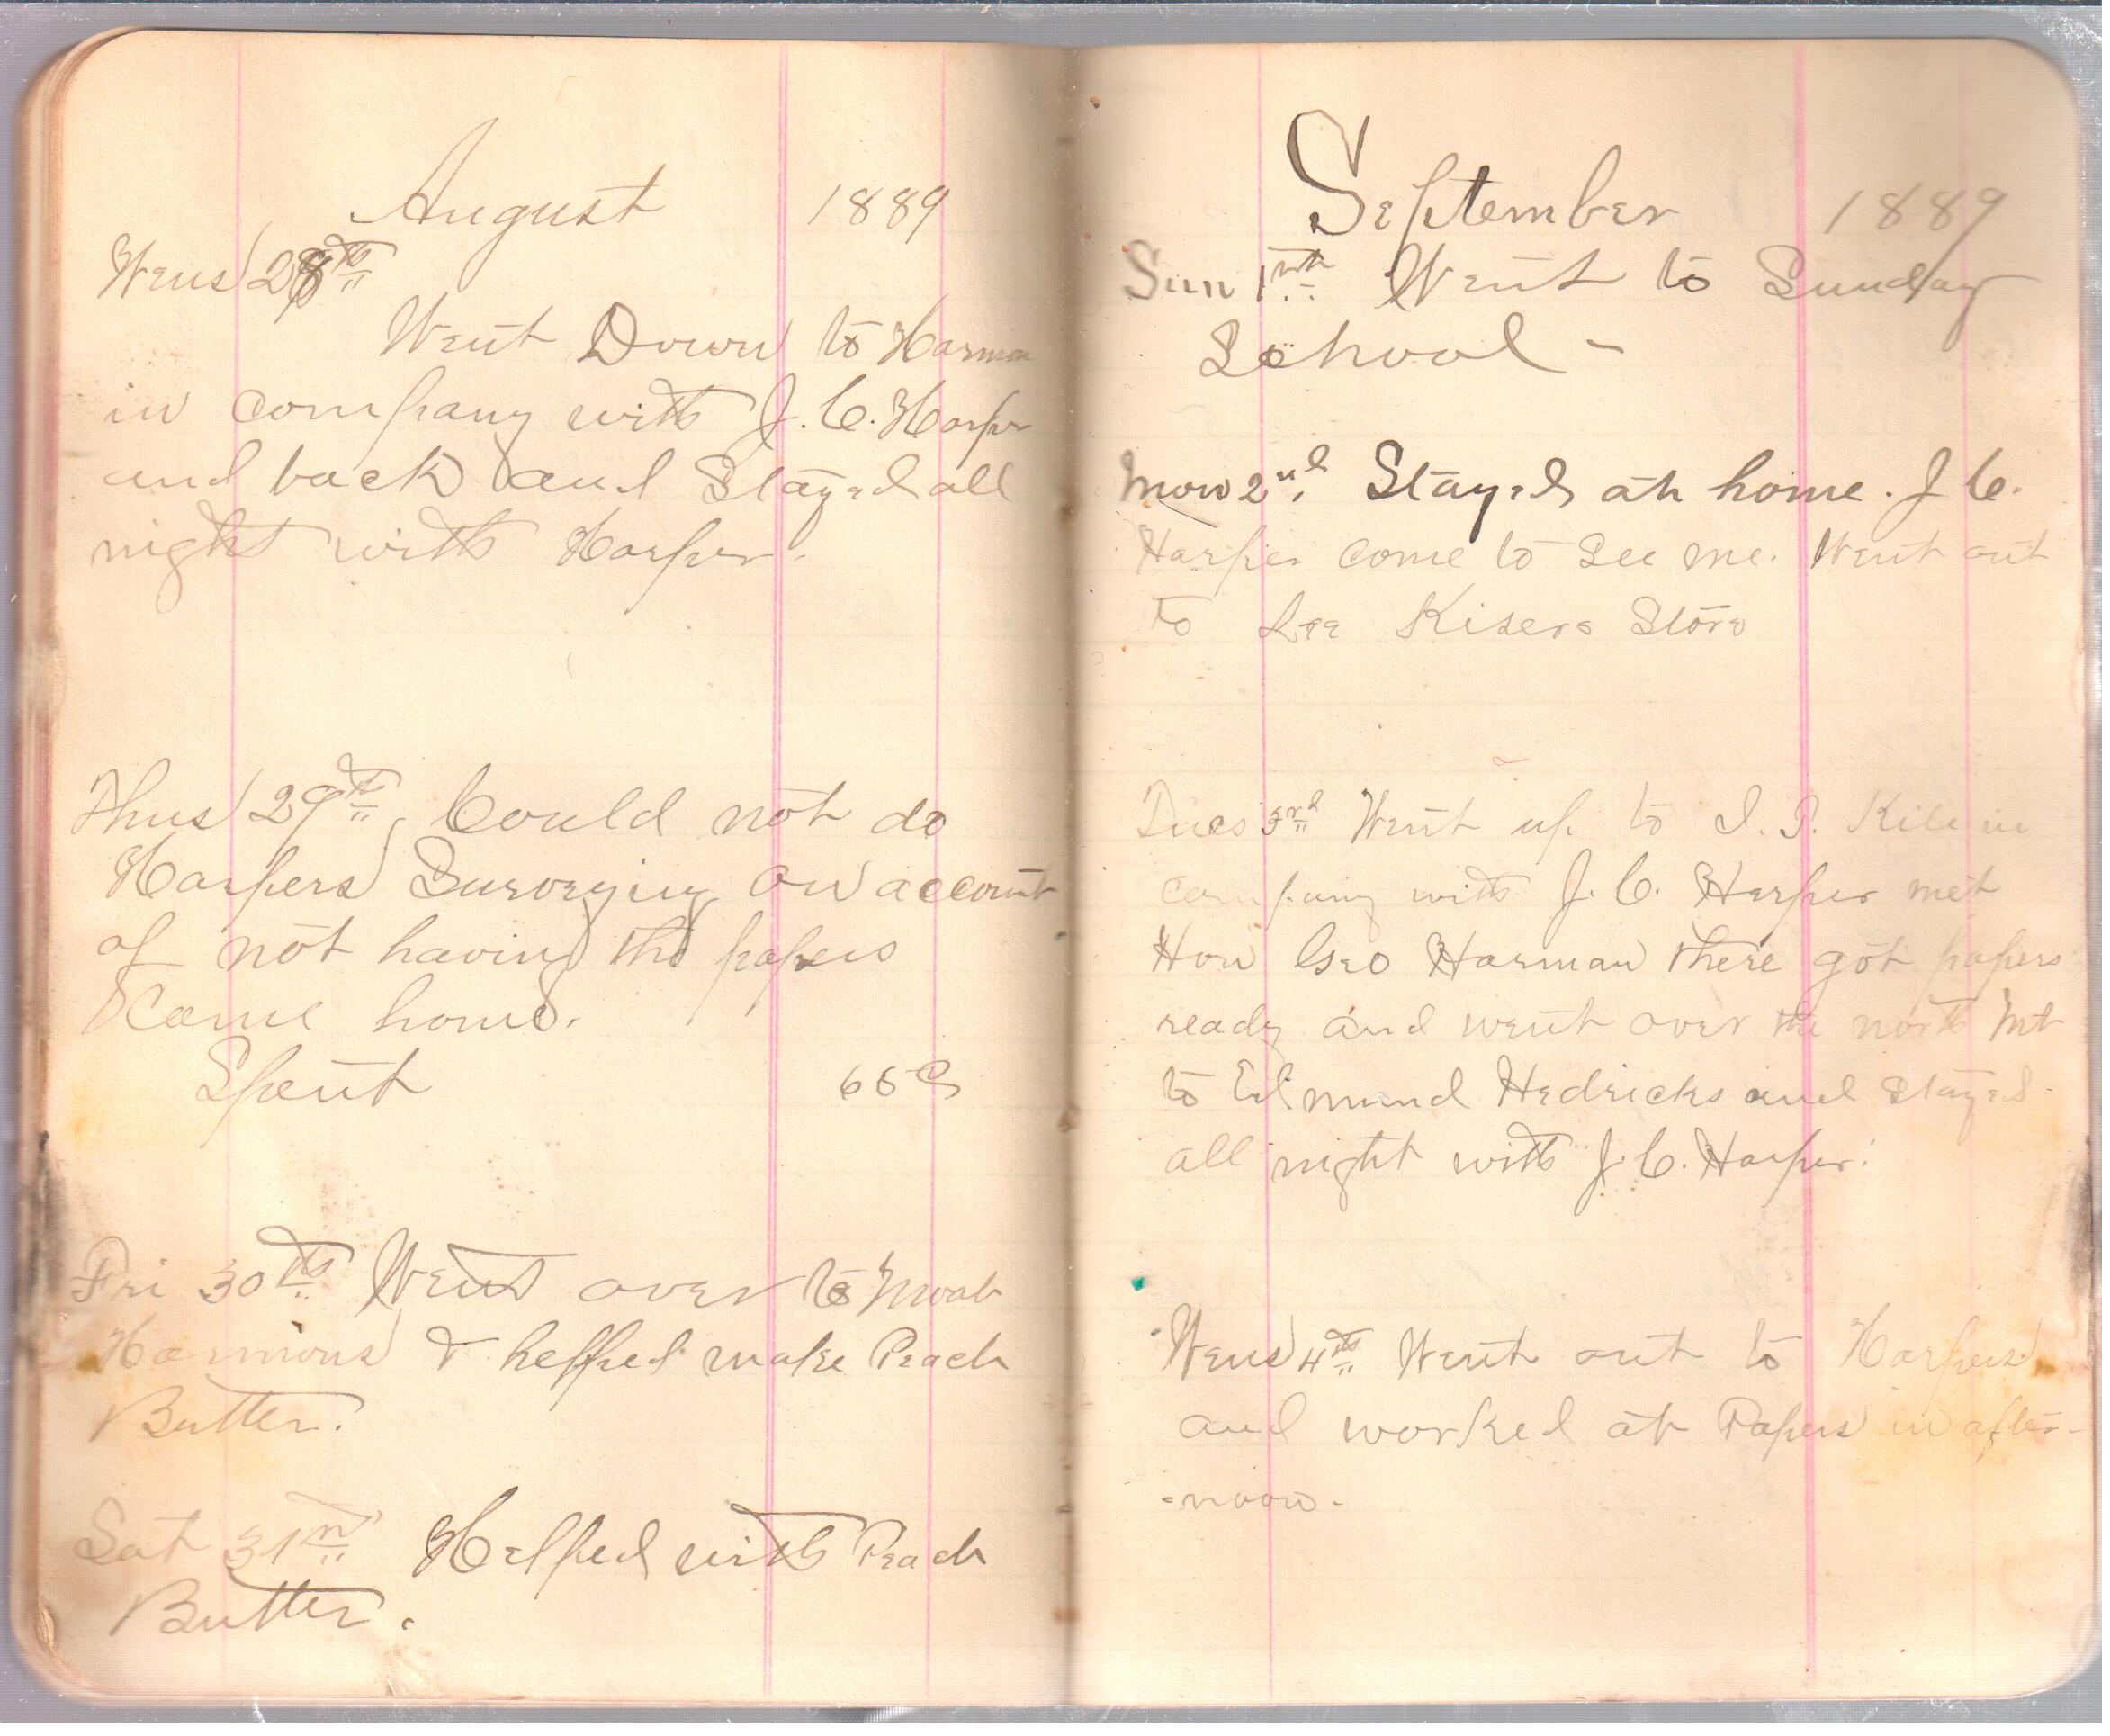 August 1889
Wens 28th
Went Down to Harman
in company with J. C. Harper
and back and Stayed all
night with Harper.
Thus 29th, Could not do
Harpers Surveying on account
of not having the papers
Came home.
Spent 65 c
Fri 30th Went over to Noah
Harmons & helped make Peach
Butter.
Sat 31st Helped with Peach
Butter.
September 1889
Sun 1st Went to Sunday
School -
Mon 2nd. Stayed at home. J C.
Harper come to see me. Went out
to Lee Kisers Store
Tues 3rd Went up to in
company with J. C. Harper met
Hon Geo Harman there got papers
ready and went over the north Mt
to Edmund Hedricks and stayed
all night with J. C. Harper.
Wens 4th Went out to Harpers
and worked at Papers in after-
-noon-